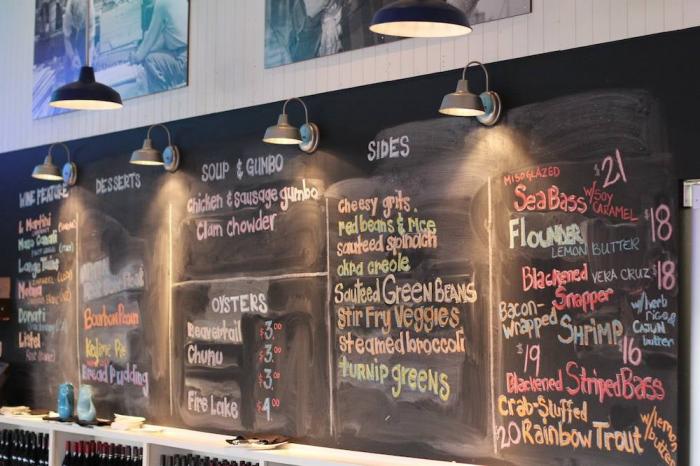 WINE FEATURE
Donati
DESSERTS
Bourbon Pecan
Keylime Pie
Bread Pudding
SOUP & GUMBO
Chicken & sausage gumbo
Clam chowder
OYSTERS
Beavertail $3.00
Chuhu $3.00
$3.00
Fire Lake $4
SIDES
cheesy grits
red beans & rice
sauteed spinach
okra creole
Sauteed GREEN BEANS
Stir Fry Veggies
steamed broccoli
turnip greens
MISO GLAZED $21
Sea Bass w/ SOY CARAMEL
Flounder $18
LEMON BUTTER
Blackened VERA CRUZ $18
Snapper
Bacon-wrapped Shrimp w/ herb rice & CAJUN butter
$19 $16
Blackened Striped Bass
Crab-Stuffed
$20 Rainbow Trout w/ lemon butter